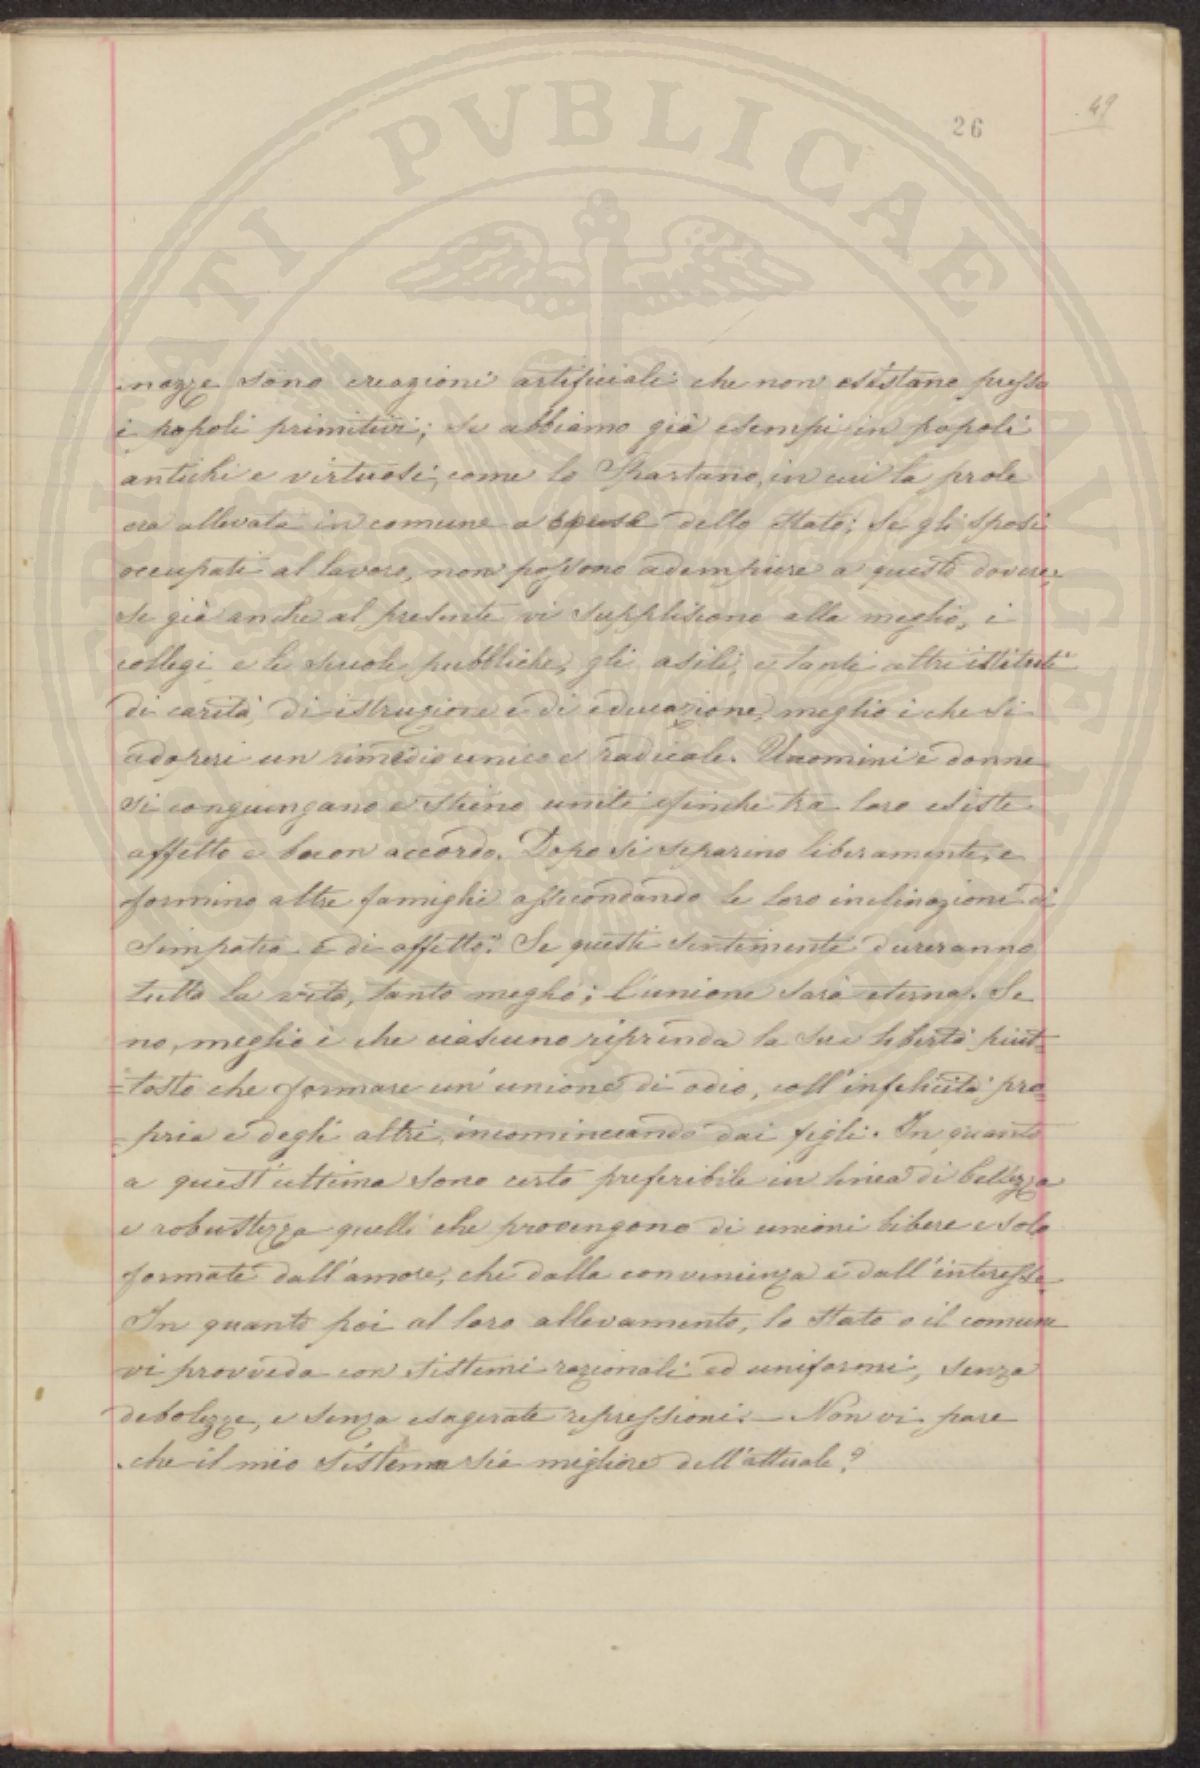 26
49
nozze sono creazioni artificiali che non esistano presso
i popoli primitivi; se abbiamo già esempi in popoli
antichi e virtuosi, come lo Spartano, in cui la prole
era allevata in comune a spese dello Stato; se gli sposi
occupati al lavoro, non possono adempiere a questo dovere;
se già anche al presente vi suppliscono alla meglio, i
collegi e le scuole pubbliche, gli asili, e tanti altri istituti
di carità, di istruzione e di educazione, meglio è che si
adoperi un rimedio unico e radicale. Uuomini e donne
si congiungano e stieno uniti efinche tra loro esiste
affetto e buon accordo. Dopo si separino liberamente, e
formino altre famiglie assecondando le loro inclinazioni di
simpatia e di affetto. Se questi sentimenti dureranno
tutta la vita, tanto meglio; l'unione sarà eterna. Se
no, meglio è che ciascuno riprenda la sua libertà piut=
=tosto che formare un'unione di odio, coll'infelicità pro=
=pria e degli altri, incominciando dai figli. In quanto
a quest'ultima sono certo preferibile in linea di bellezza
e robustezza quelli che provengono di unioni libere e solo
formate dall'amore, che dalla convenienza e dall'interesse.
In quanto poi al loro allevamento, lo Stato o il comune
vi provveda con sistemi razionali ed uniformi, senza
debolezze, e senza esagerate repressioni. — Non vi pare
che il mio sistema sia migliore dell'attuale?
PVBLICAE